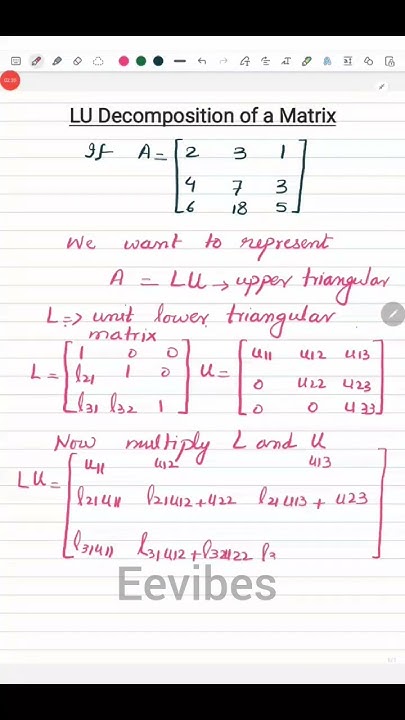 LU Decomposition of a Matrix
If A = [2 3 1
4 7 3
6 18 5]
We want to represent
A = LU → upper triangular
L => unit lower triangular
matrix
L = [1 0 0
l21 1 0
l31 l32 1]
U = [u11 u12 u13
0 u22 u23
0 0 u33]
Now multiply L and U
LU = [u11 u12 u13
l21u11 l21u12+u22 l21u13+u23
l31u11 l31u12+l32u22 l3]
Eevibes